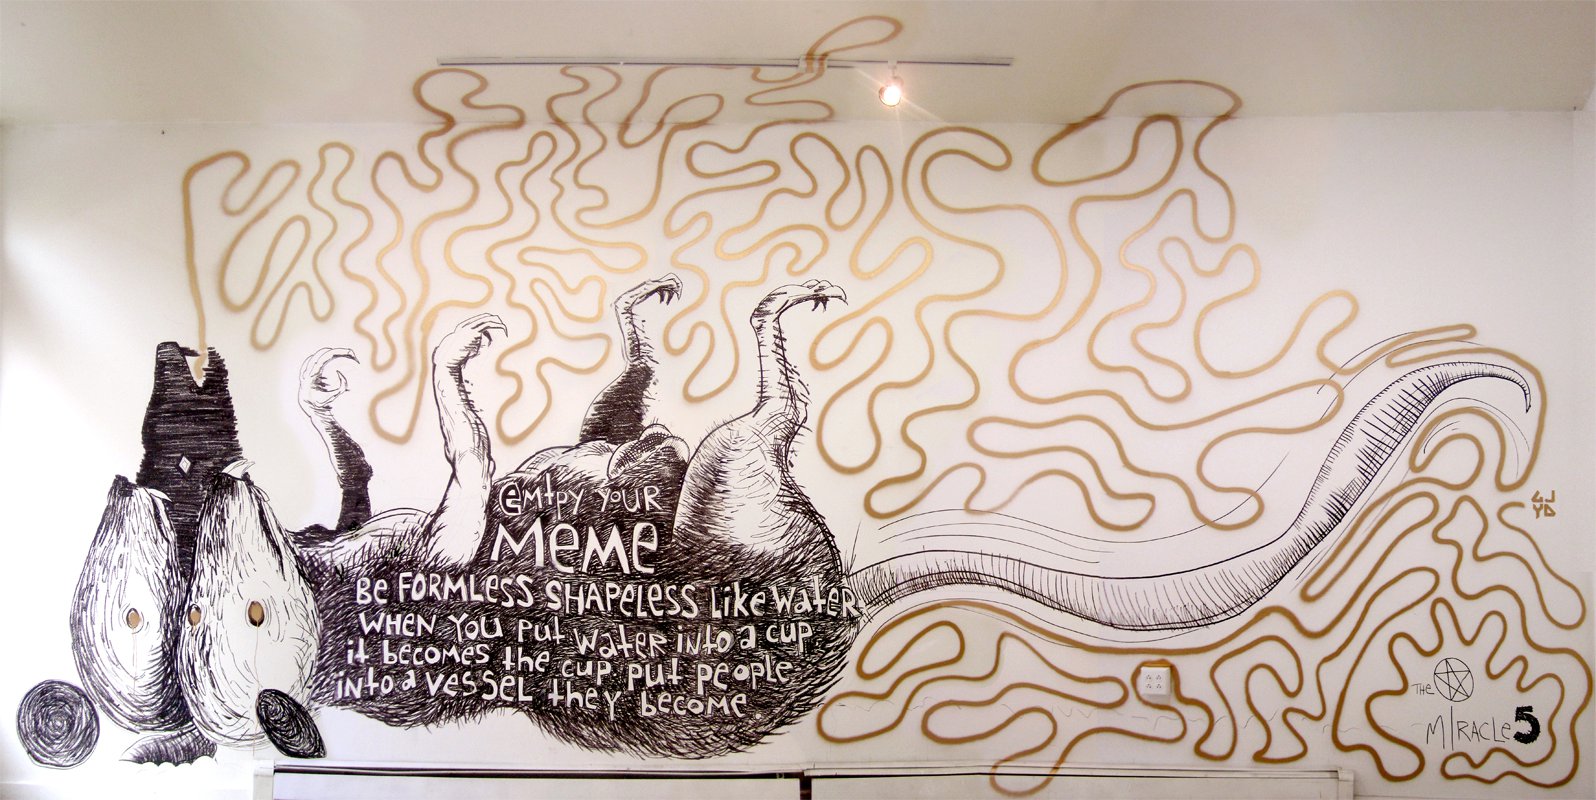 emtpy YOUR
MEME
Be FORMLESS SHAPELESS Like WateR
WHEN YOU PUt WateR iNtO a CUP
it becomes the CUP PUt PeOPLe
iNto a VESSEL they become.
LJ
YD
THE
M/RACLe 5